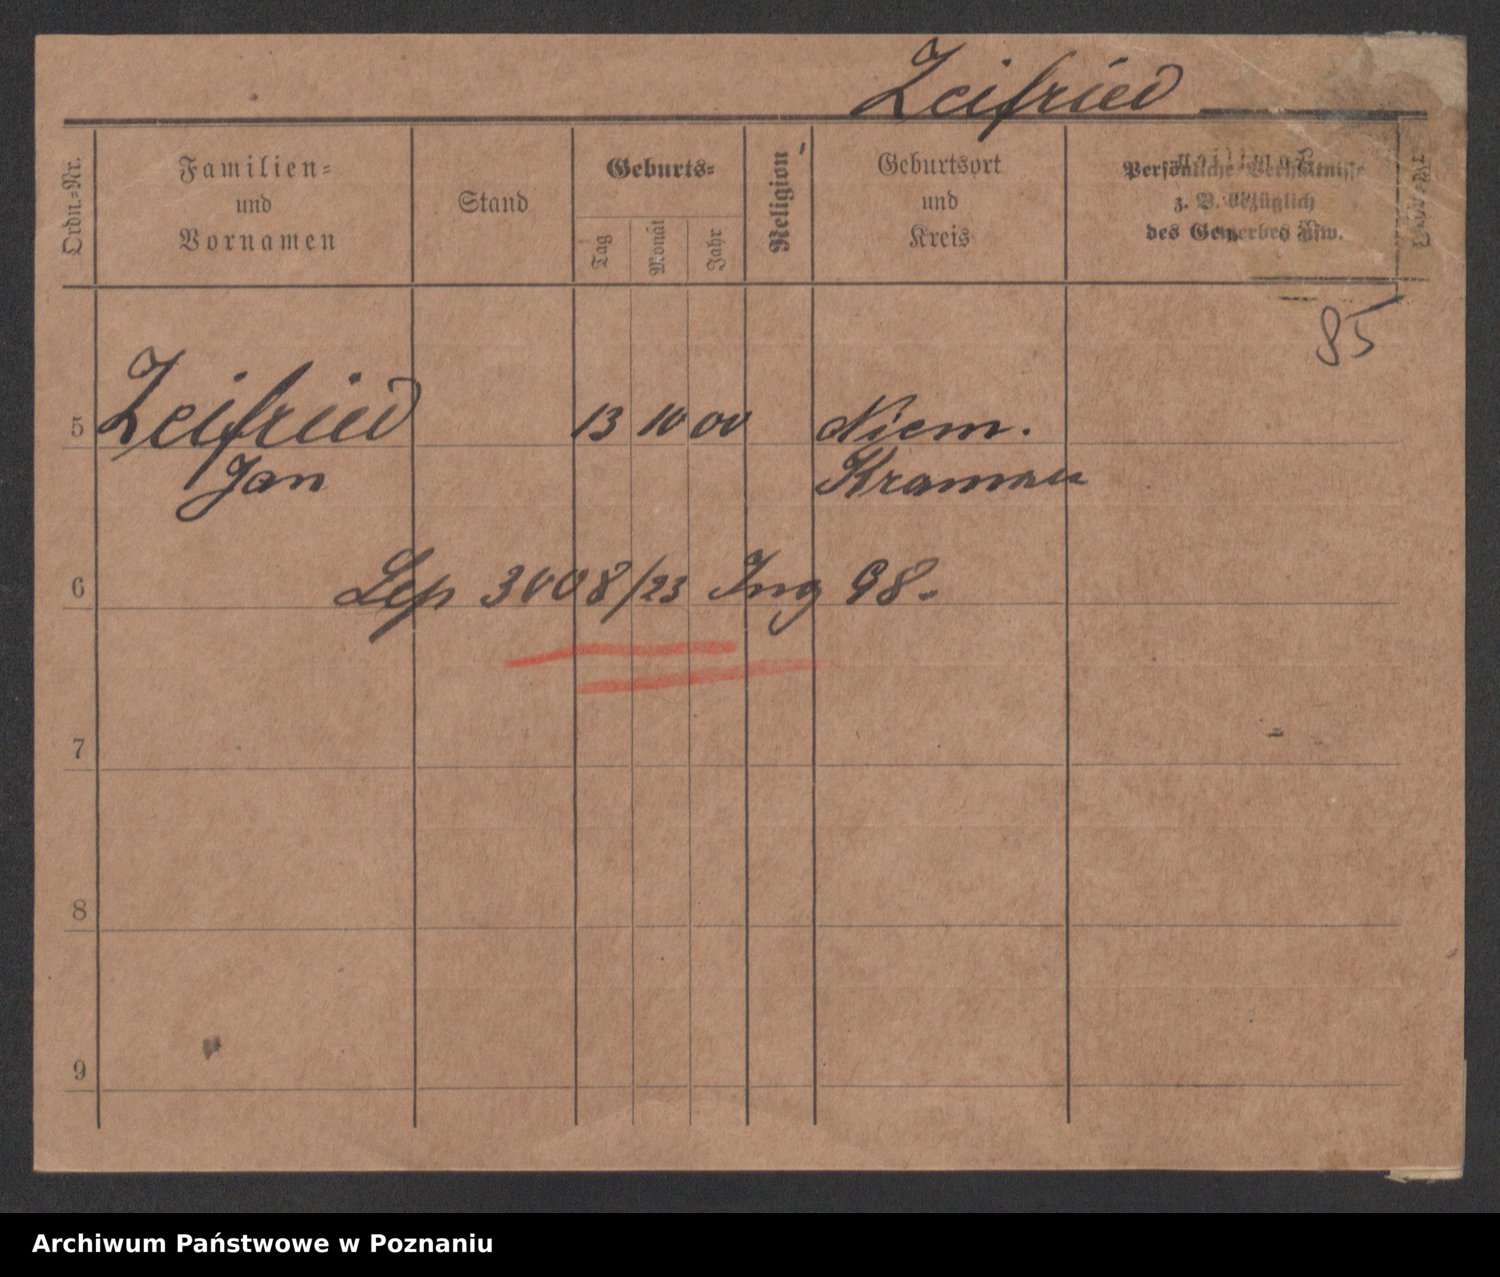 Zeifried
Ordn.-Nr.
Familien-
und
Vornamen
Stand
Geburts-
Tag
Monat
Jahr
Religion
Geburtsort
und
Kreis
Persönliche Verhältnisse
z. B. bezüglich
des Gewerbes usw.
85
5 Zeifried 13 10 00 Niem.
Jan
6 3008/23 98.
7
8
9
Archiwum Państwowe w Poznaniu